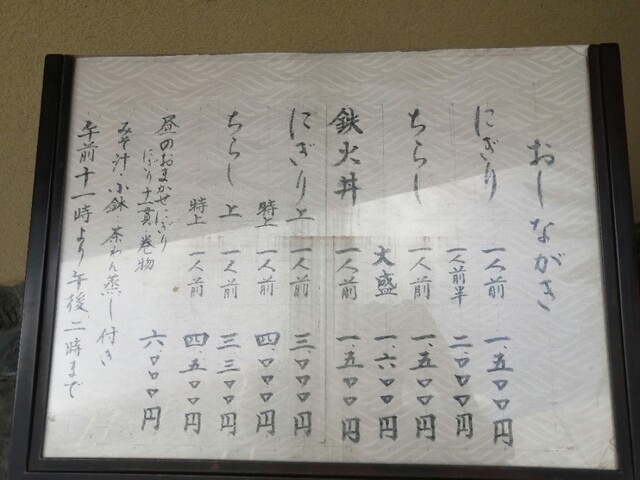 おしながき
にぎり 一人前 一、五〇〇円
一人前半 二、〇〇〇円
ちらし 一人前 一、五〇〇円
大盛 一、六〇〇円
鉄火丼 一人前 一、五〇〇円
にぎり 上 一人前 三、〇〇〇円
特上 一人前 四、〇〇〇円
ちらし 上 一人前 三、三〇〇円
特上 一人前 四、五〇〇円
昼のおまかせにぎり 六、〇〇〇円
にぎり十一貫 巻物
みそ汁 小鉢 茶わん蒸し付き
午前十一時より午後二時まで